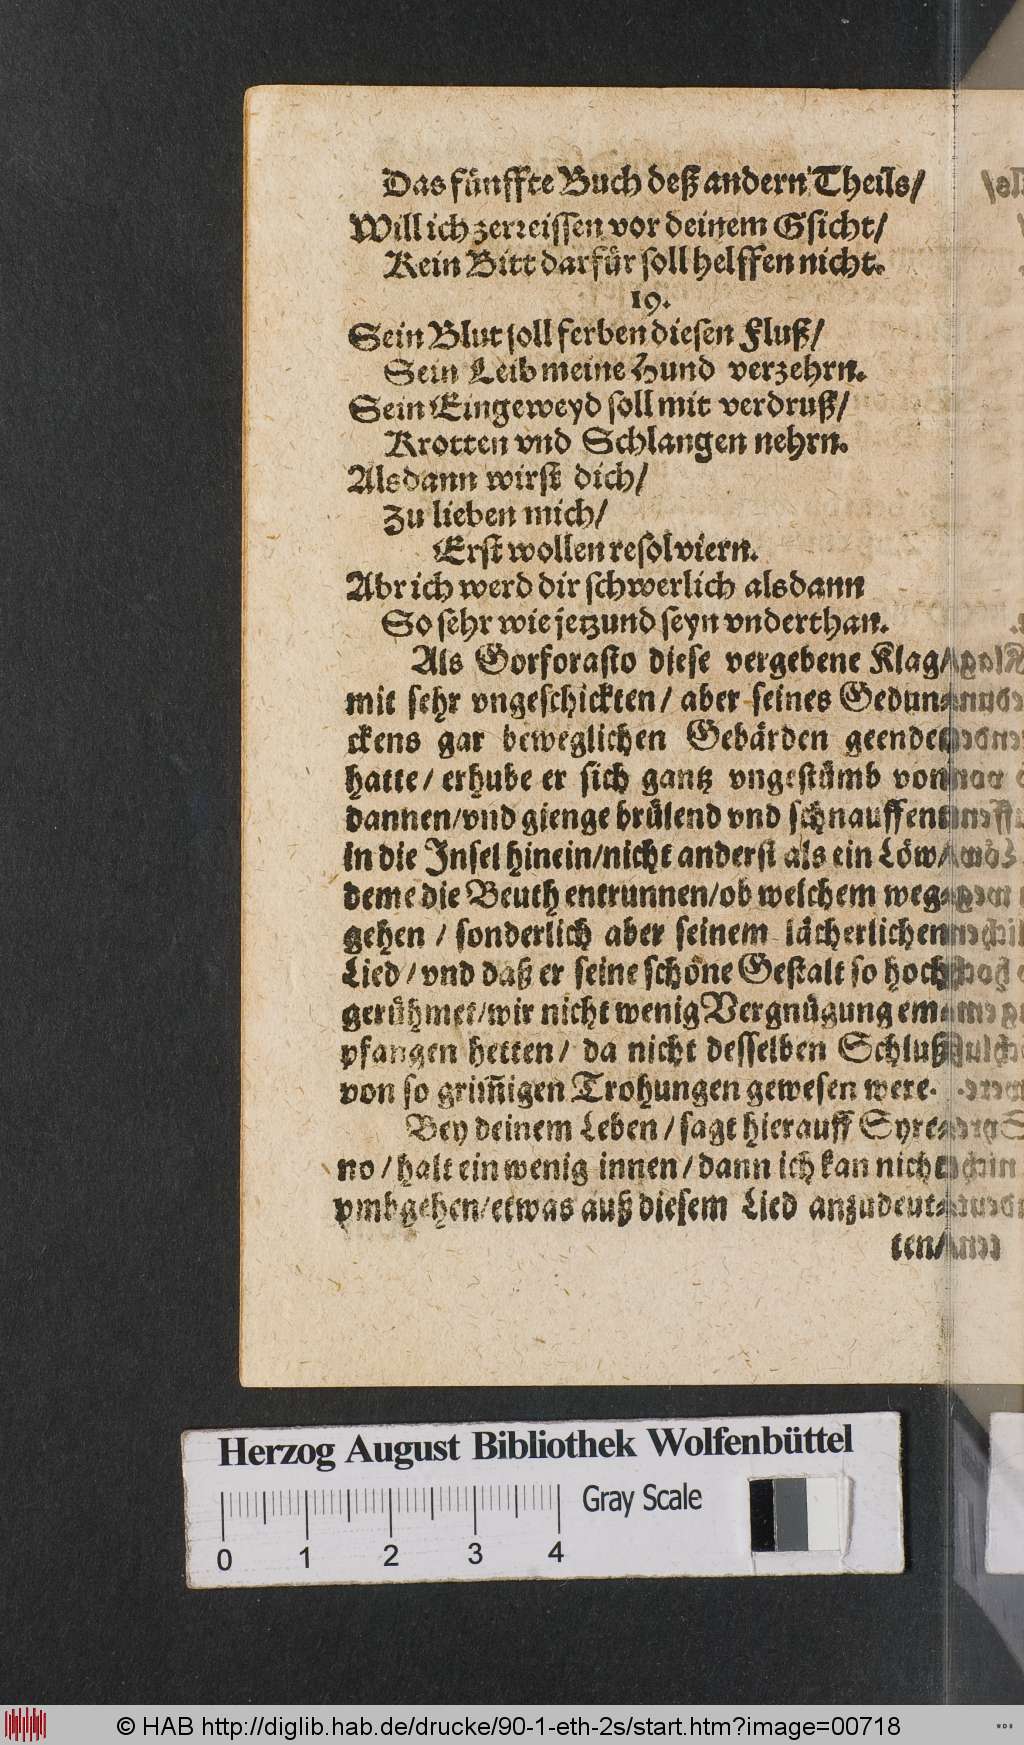 Das fünffte Buch deß andern Theils/
Will ich zerreissen vor deinem Gsicht/
Kein Bitt darfür soll helffen nicht.
19.
Sein Blut soll ferben diesen Fluß/
Sein Leib meine Hund verzehrn.
Sein Eingeweyd soll mit verdruß/
Krotten vnd Schlangen nehrn.
Alsdann wirst dich/
Zu lieben mich/
Erst wollen resolviern.
Abr ich werd dir schwerlich alsdann
So sehr wie jetzund seyn vnderthan.
Als Gorforasto diese vergebene Klag/
mit sehr vngeschickten/ aber seines Gedun-
ckens gar beweglichen Gebärden geendet
hatte/ erhube er sich gantz vngestümb von
dannen/vnd gienge brülend vnd schnauffent
in die Insel hinein/nicht anderst als ein Löw/
deme die Beuth entrunnen/ob welchem weg-
gehen / sonderlich aber seinem lächerlichen
Lied/ vnd daß er seine schöne Gestalt so hoch
gerühmet/wir nicht wenig Vergnügung em-
pfangen hetten/ da nicht desselben Schluß
von so grim̃igen Trohungen gewesen were.
Bey deinem Leben/ sagt hierauff Syre-
no/ halt ein wenig innen/ dann ich kan nicht
vmbgehen/etwas auß diesem Lied anzudeut-
ten/
Herzog August Bibliothek Wolfenbüttel
Gray Scale
0 1 2 3 4
© HAB http://diglib.hab.de/drucke/90-1-eth-2s/start.htm?image=00718